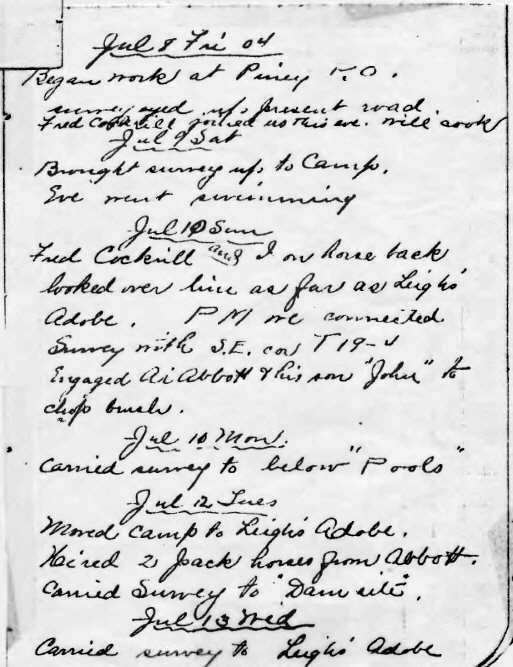 Jul 8 Fri 04
Began work at Piney P.O.
surveyed up present road.
Fred Cockrill joined us this eve. Will cook
Jul 9 Sat
Brought survey up to Camp.
Eve went swimming
Jul 10 Sun
Fred Cockrill and I on horse back
looked over line as far as Leighs'
Adobe. PM we connected
Survey with S.E. cor T 19-4
Engaged Ai Abbott & his son "John" to
chop brush.
Jul 10 Mon.
Carried survey to below "Pools"
Jul 12 Tues
Moved camp to Leighs Adobe.
Hired 2 pack horses from Abbott.
Carried Survey to "Dam site".
Jul 13 Wed
Carried survey to Leighs' Adobe